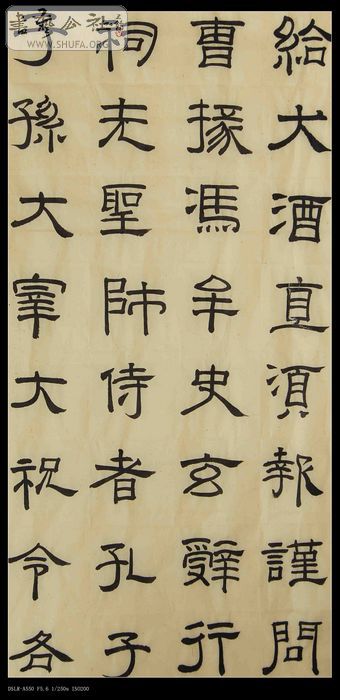 書藝公社
WWW.SHUFA.ORG
給犬酒直須報謹問
曹掾馮牟史玄辭行
祠先聖師侍者孔子
子孫大宰大祝令各
DSLR-A550 F5.6 1/250s ISO200